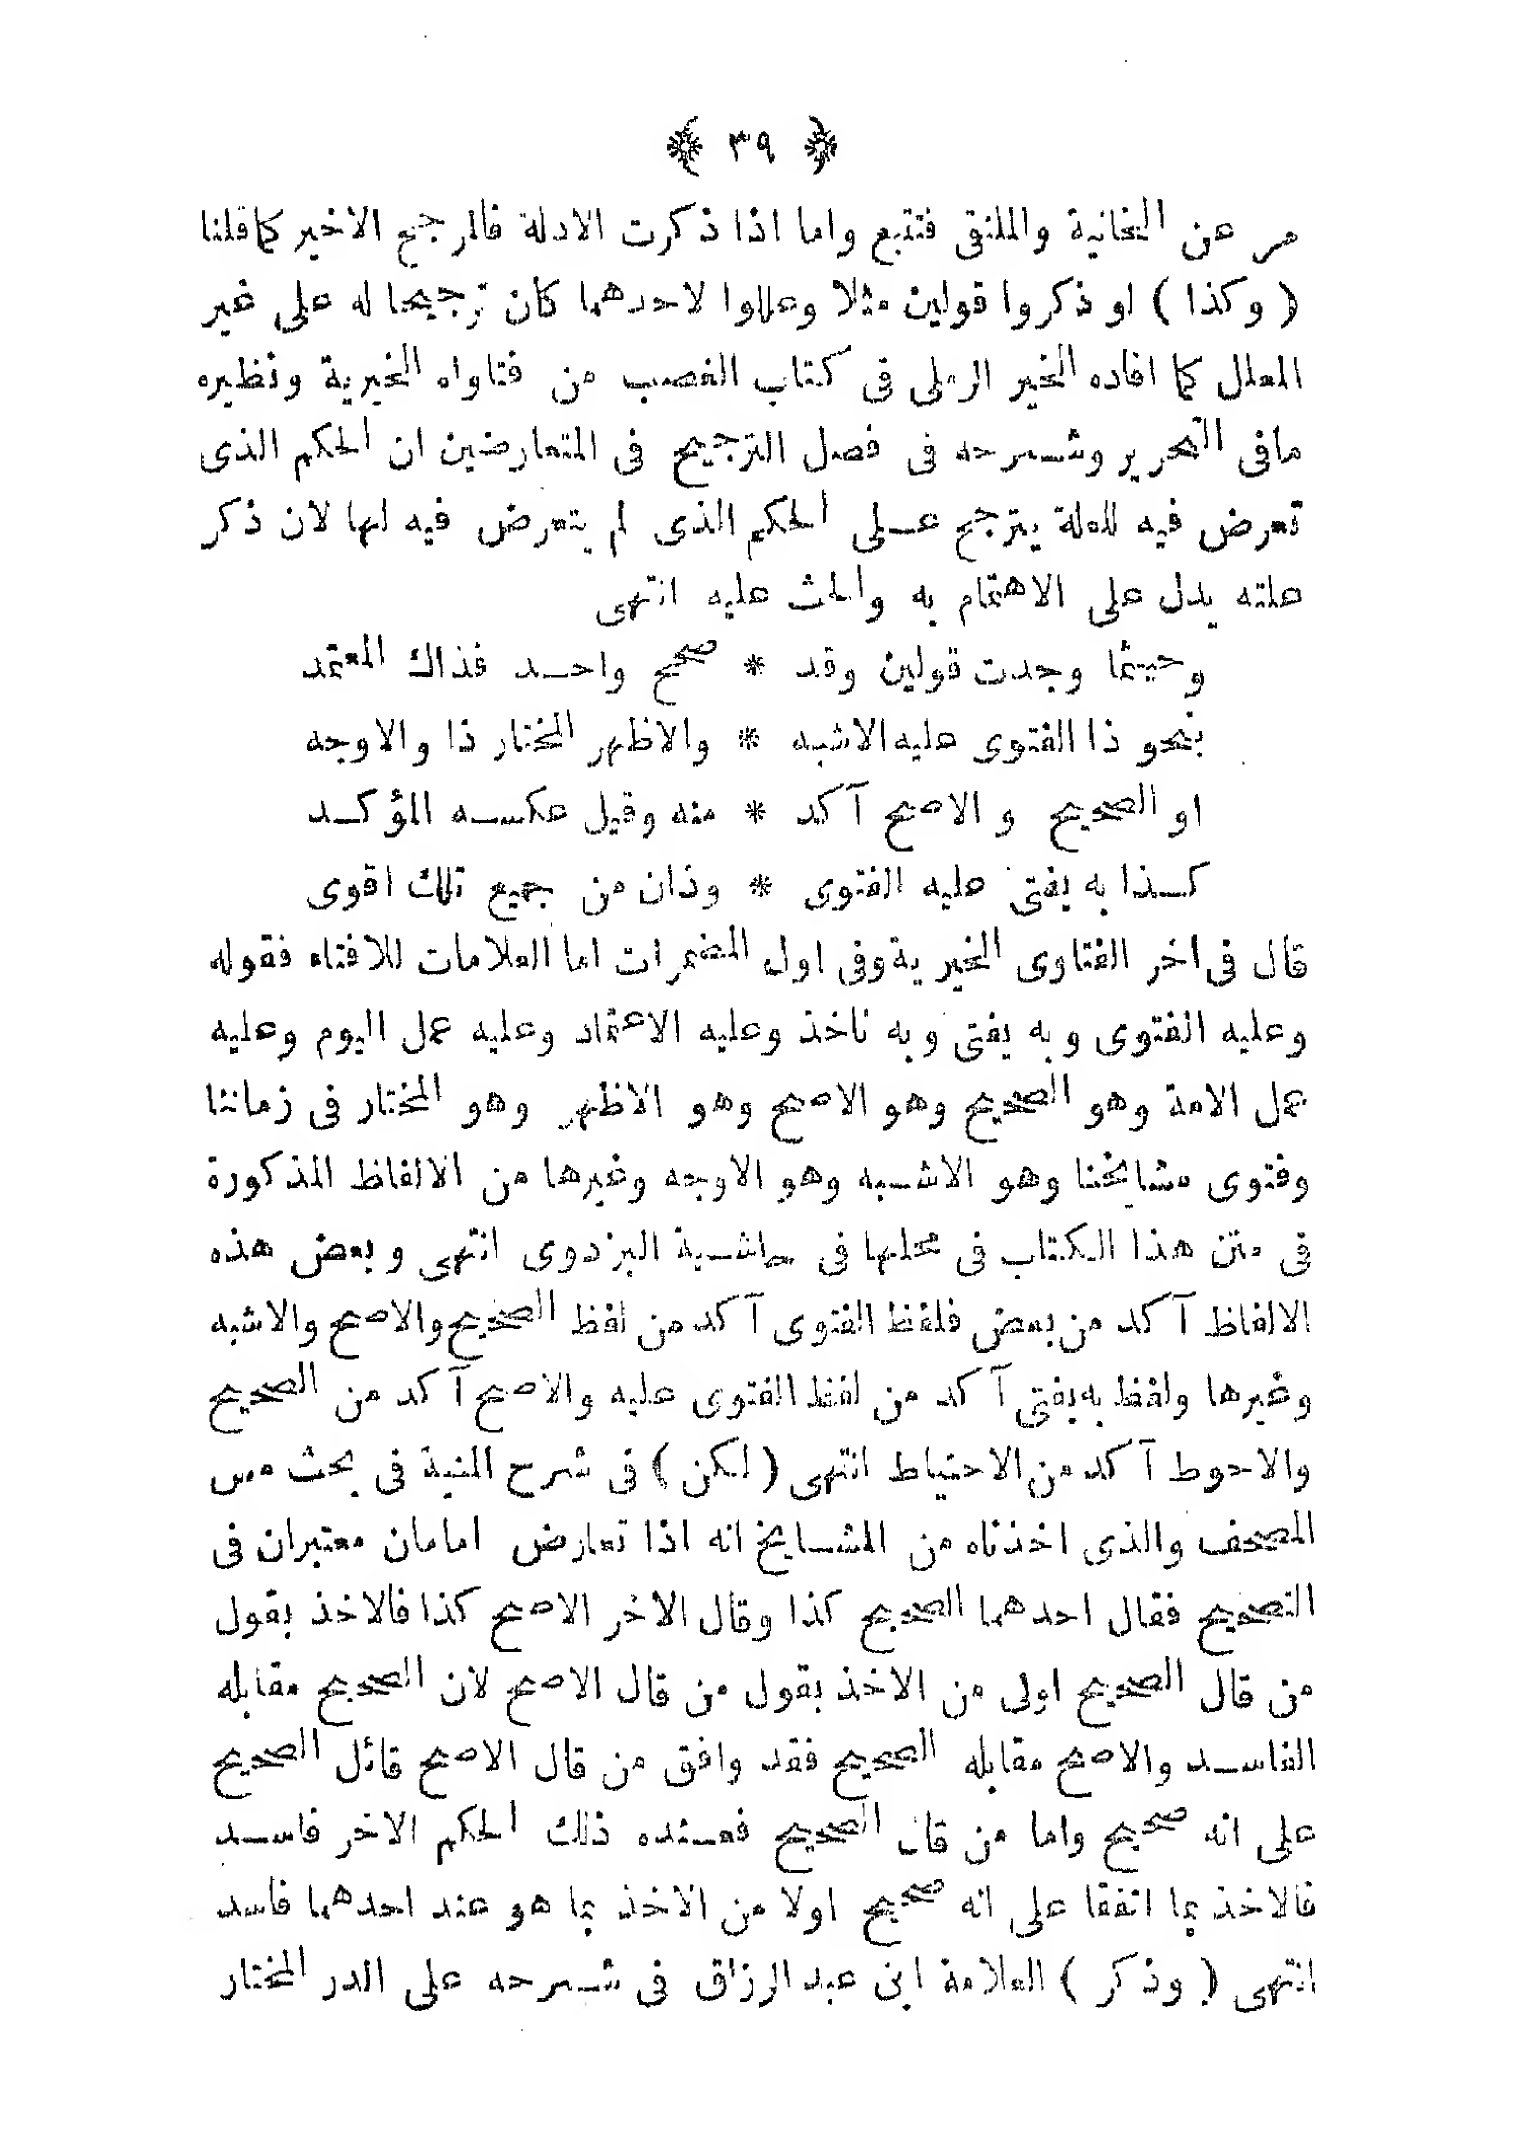 ﴿ ٣٩ ﴾
مر عن الخانية والملتقى فتتبع واما اذا ذكرت الادلة فالمرجح الاخير كما قلنا
( وكذا ) لو ذكروا قولين مثلا وعللوا لاحدهما كان ترجيحا له على غير
المعلل كما افاده الخير الرملى فى كتاب الغصب من فتاواه الخيرية ونظيره
مافى التحرير وشرحه فى فصل الترجيح فى المتعارضين ان الحكم الذى
تعرض فيه للعلة يترجح على الحكم الذى لم يتعرض فيه لها لان ذكر
علته يدل على الاهتمام به والحث عليه انتهى
وحيثما وجدت قولين وقد * صحح واحد فذاك المعتمد
بنحو ذا الفتوى عليه الاشبه * والاظهر المختار ذا والاوجه
او الصحيح والاصح آكد * منه وقيل عكسه المؤكد
كذا به يفتى عليه الفتوى * وذان من جميع تلك اقوى
قال فى اخر الفتاوى الخيرية وفى اول المضمرات اما العلامات للافتاء فقوله
وعليه الفتوى وبه يفتى وبه ناخذ وعليه الاعتماد وعليه عمل اليوم وعليه
عمل الامة وهو الصحيح وهو الاصح وهو الاظهر وهو المختار فى زماننا
وفتوى مشايخنا وهو الاشبه وهو الاوجه وغيرها من الالفاظ المذكورة
فى متن هذا الكتاب فى محلها فى حاشية البزدوى انتهى وبعض هذه
الالفاظ آكد من بعض فلفظ الفتوى آكد من لفظ الصحيح والاصح والاشبه
وغيرها ولفظ به يفتى آكد من لفظ الفتوى عليه والاصح آكد من الصحيح
والاحوط آكد من الاحتياط انتهى ( لكن ) فى شرح المنية فى بحث مس
المصحف والذى اخذناه من المشايخ انه اذا تعارض امامان معتبران فى
التصحيح فقال احدهما الصحيح كذا وقال الاخر الاصح كذا فالاخذ بقول
من قال الصحيح اولى من الاخذ بقول من قال الاصح لان الصحيح مقابله
الفاسد والاصح مقابله الصحيح فقد وافق من قال الاصح قائل الصحيح
على انه صحيح واما من قال الصحيح فعنده ذلك الحكم الاخر فاسد
فالاخذ بما اتفقا على انه صحيح اولا من الاخذ بما هو عند احدهما فاسد
انتهى ( وذكر ) العلامة ابن عبد الرزاق فى شرحه على الدر المختار